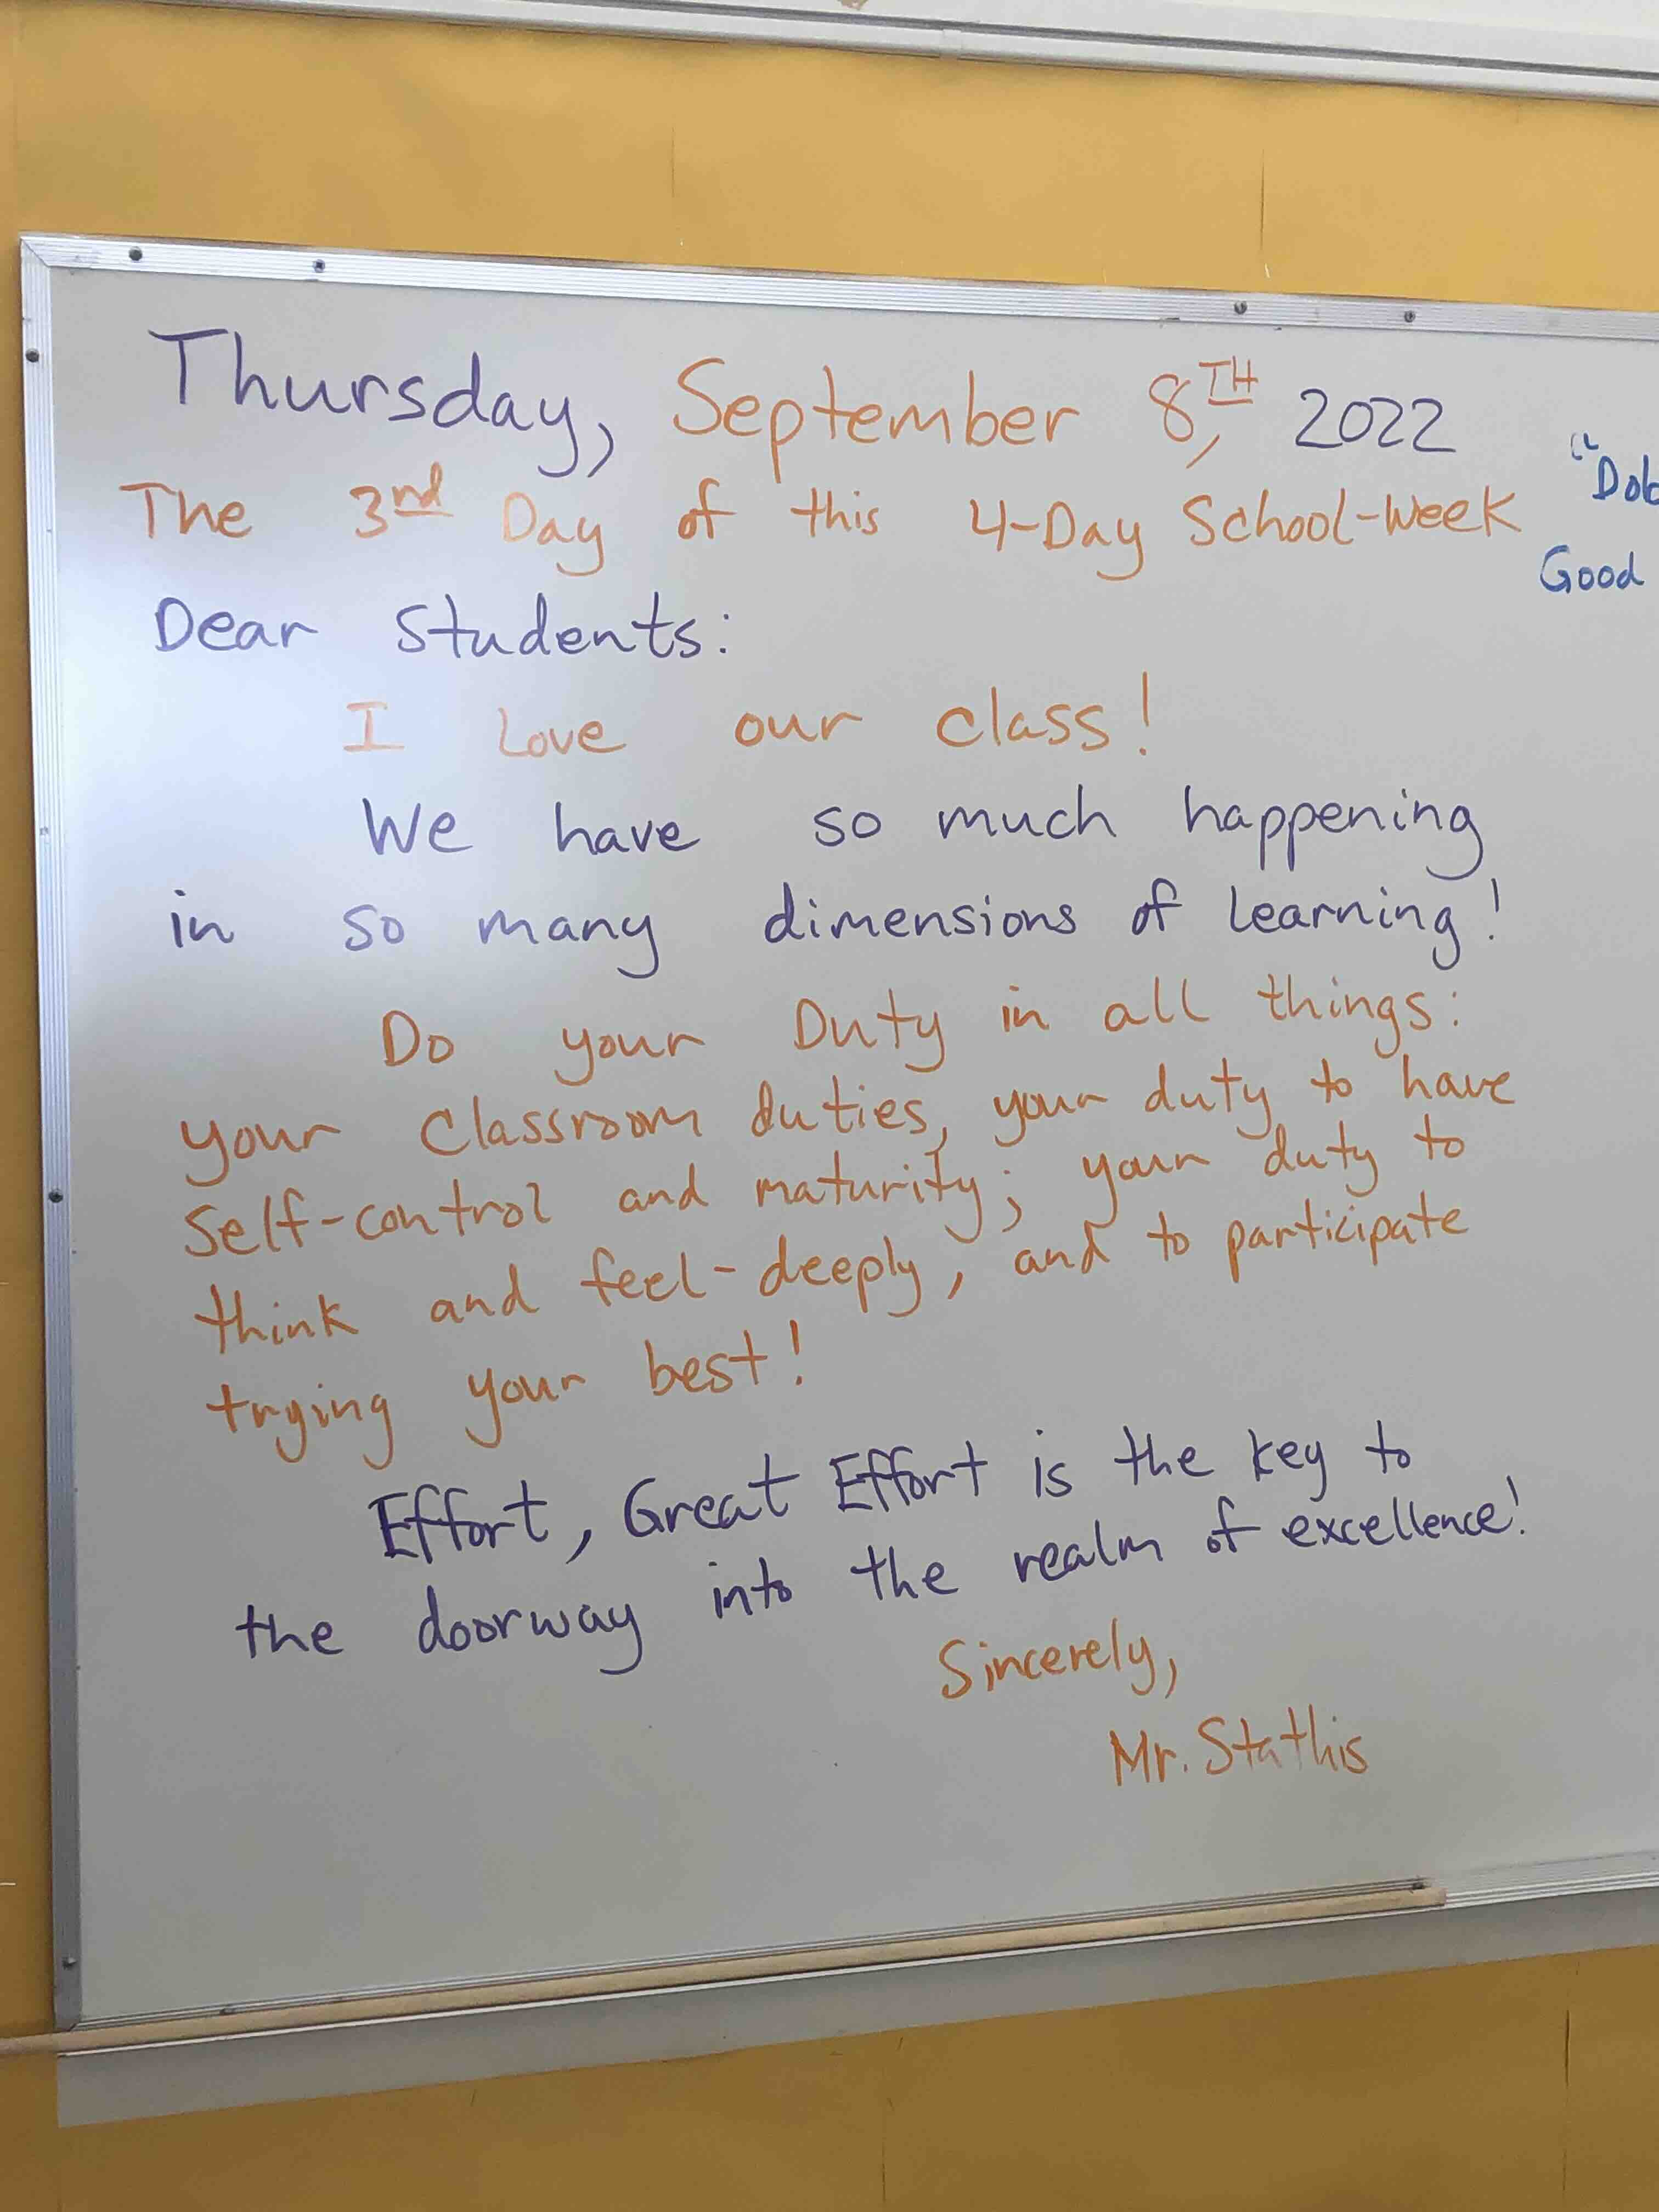 Thursday, September 8TH, 2022
The 3nd Day of this 4-Day School-Week
Dear Students:
I Love our class!
We have so much happening
in so many dimensions of learning!
Do your Duty in all things:
your classroom duties, your duty to have
self-control and maturity; your duty to
think and feel-deeply, and to participate
trying your best!
Effort, Great Effort is the key to
the doorway into the realm of excellence!
Sincerely,
Mr. Stathis
Good